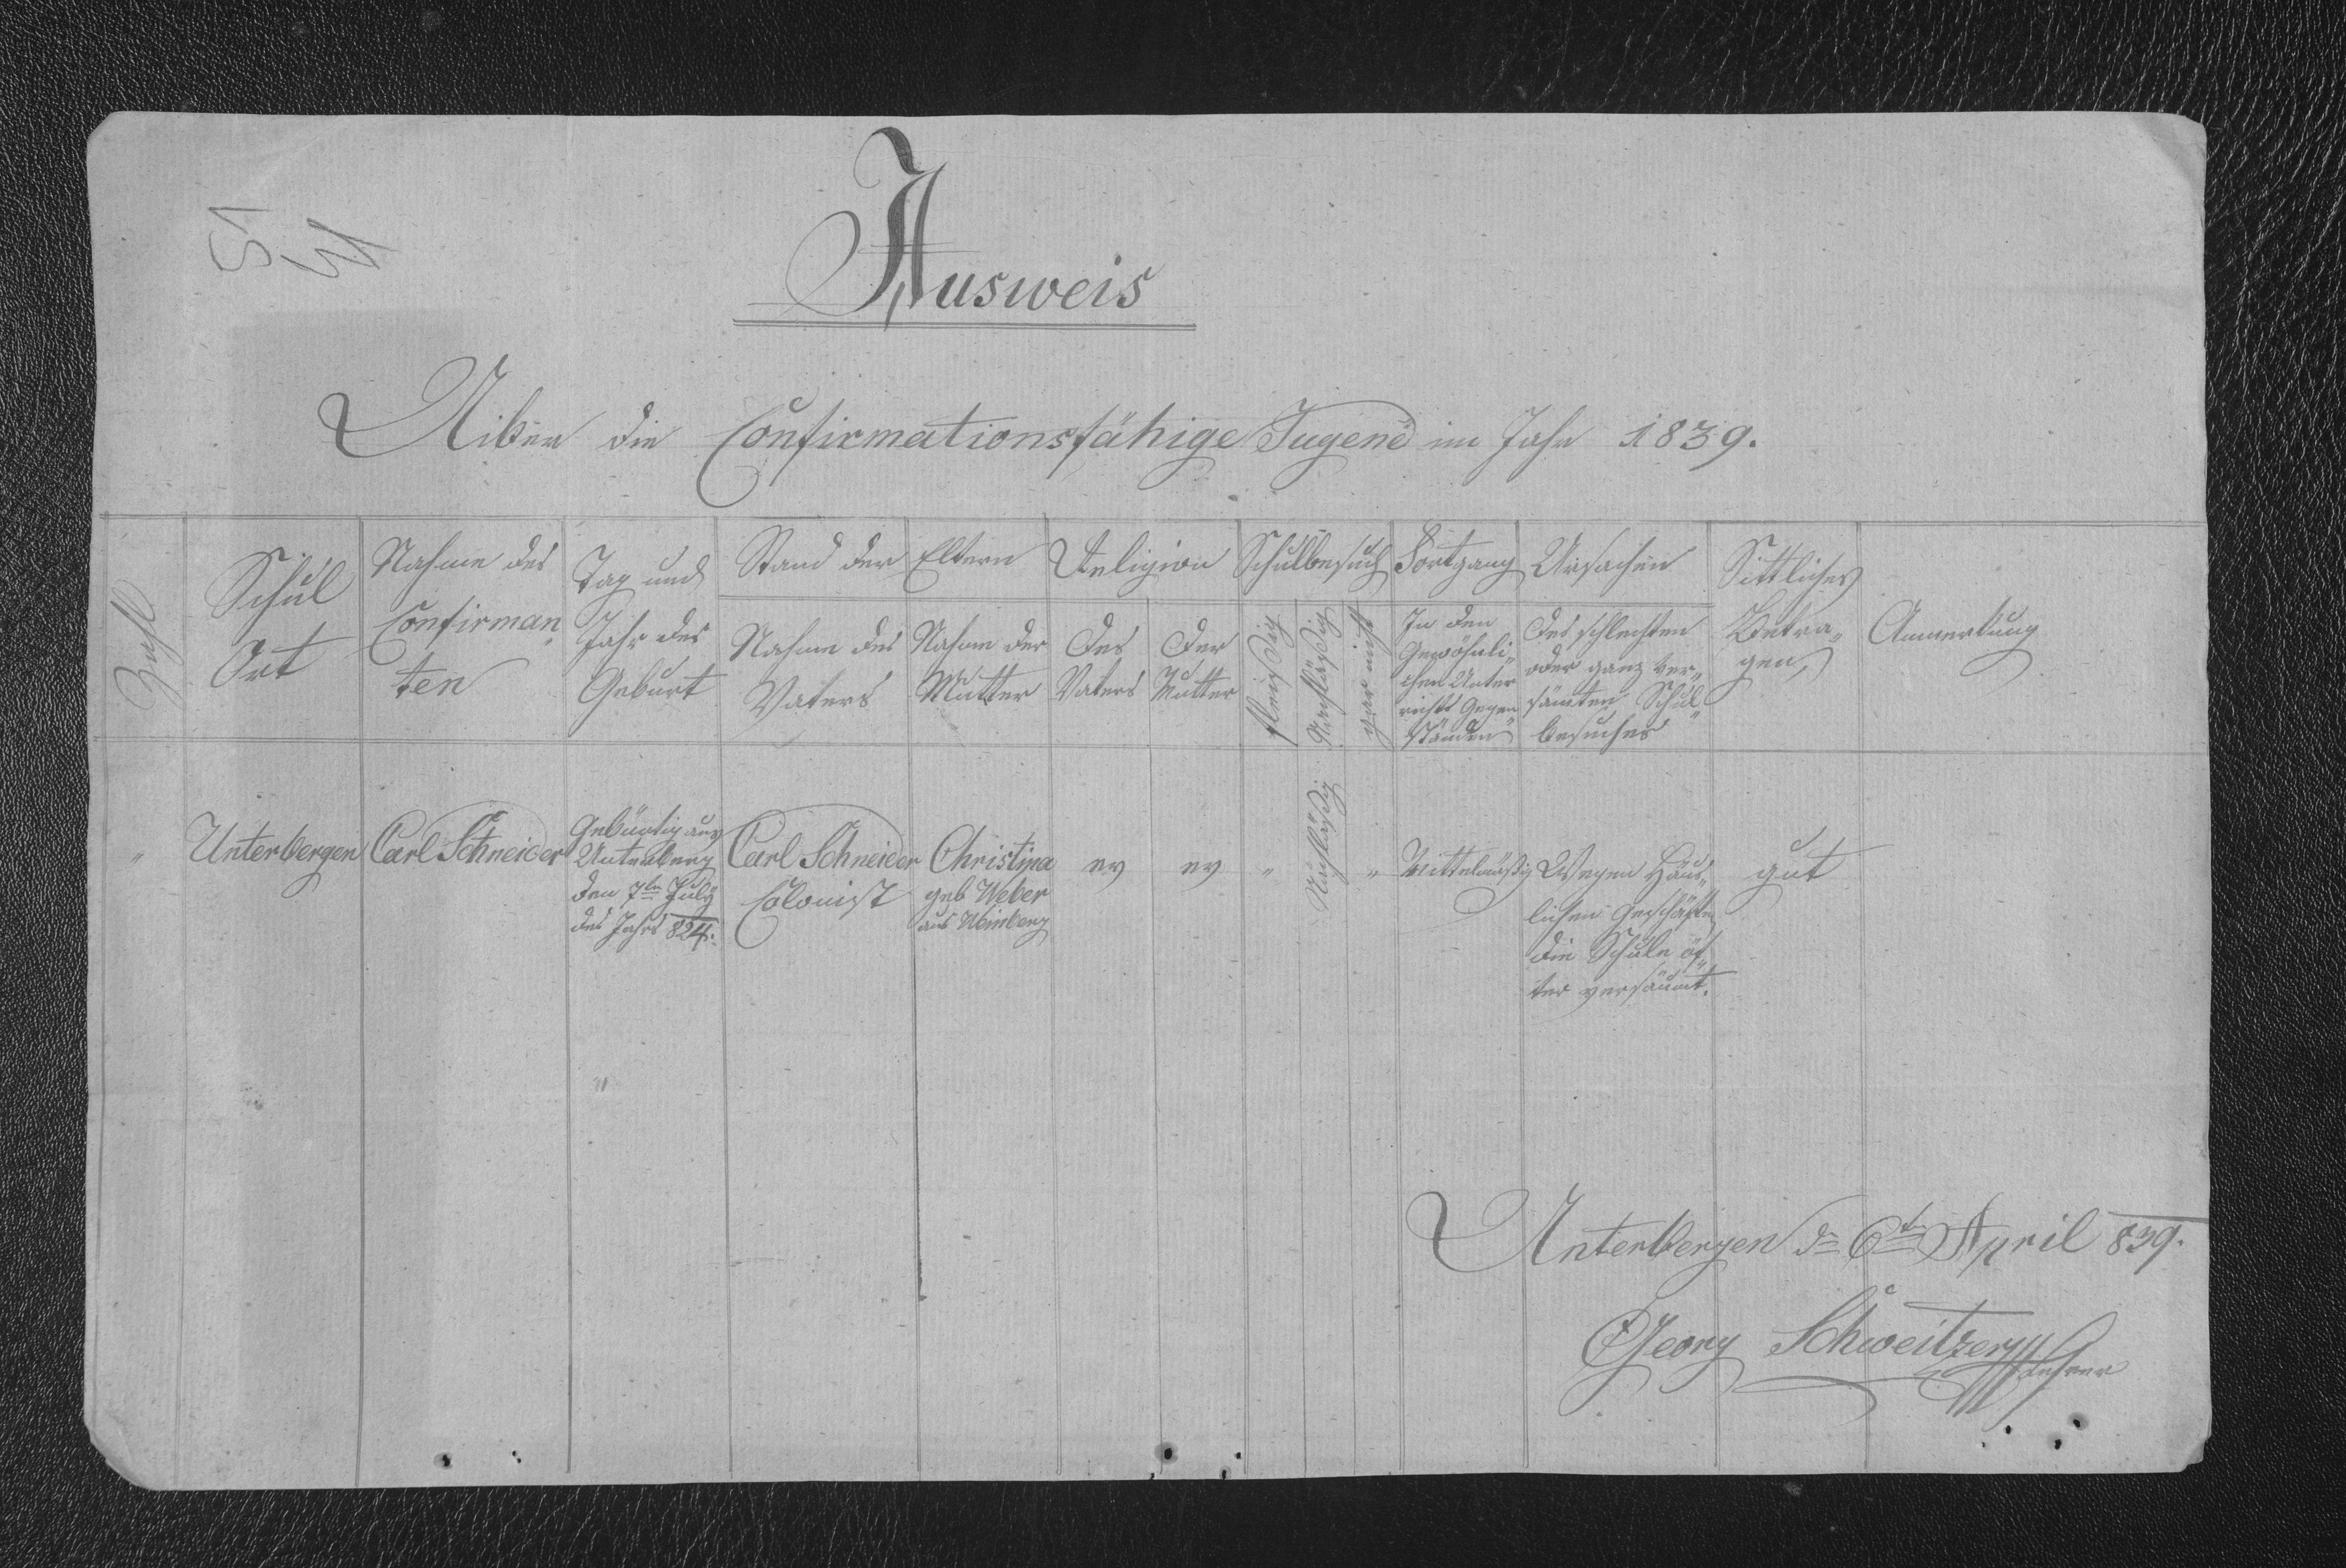 Ausweis
Uiber die Confirmationsfähige Jugend im Jahr 1839.
Zahl
Schul
Ort
Nahme des
Confirman„
ten
Tag und
Jahr der
Geburt
Stand der Eltern
Nahme des
Vaters
Nahme der
Mutter
Religion
des
Vaters
der
Mutter
Schulbesuch
fleißig
Nachläßig
gar nicht
Fortgang
In den
Gewöhnli„
chen Unter
richts Gegen
ständen
Ursachen
des schlechten
oder ganz ver„
säumten Schul„
besuches
Sittliches
Betra„
gen,
Anmerkung
„
Unterbergen
Carl Schneider
Gebürtig aus
Unterberg
den 7ten July
des Jahrs 824.
Carl Schneider
Colonist
Christina
geb Weber
aus Weinberg
ev
ev
„
Nachläßig
„
Mittelmäßig
Wegen Häus„
lichen Geschäften
die Schule öf„
ter versäumt.
gut
Unterbergen dn 6ten April 839.
Georg Schweitzer
Lehrer